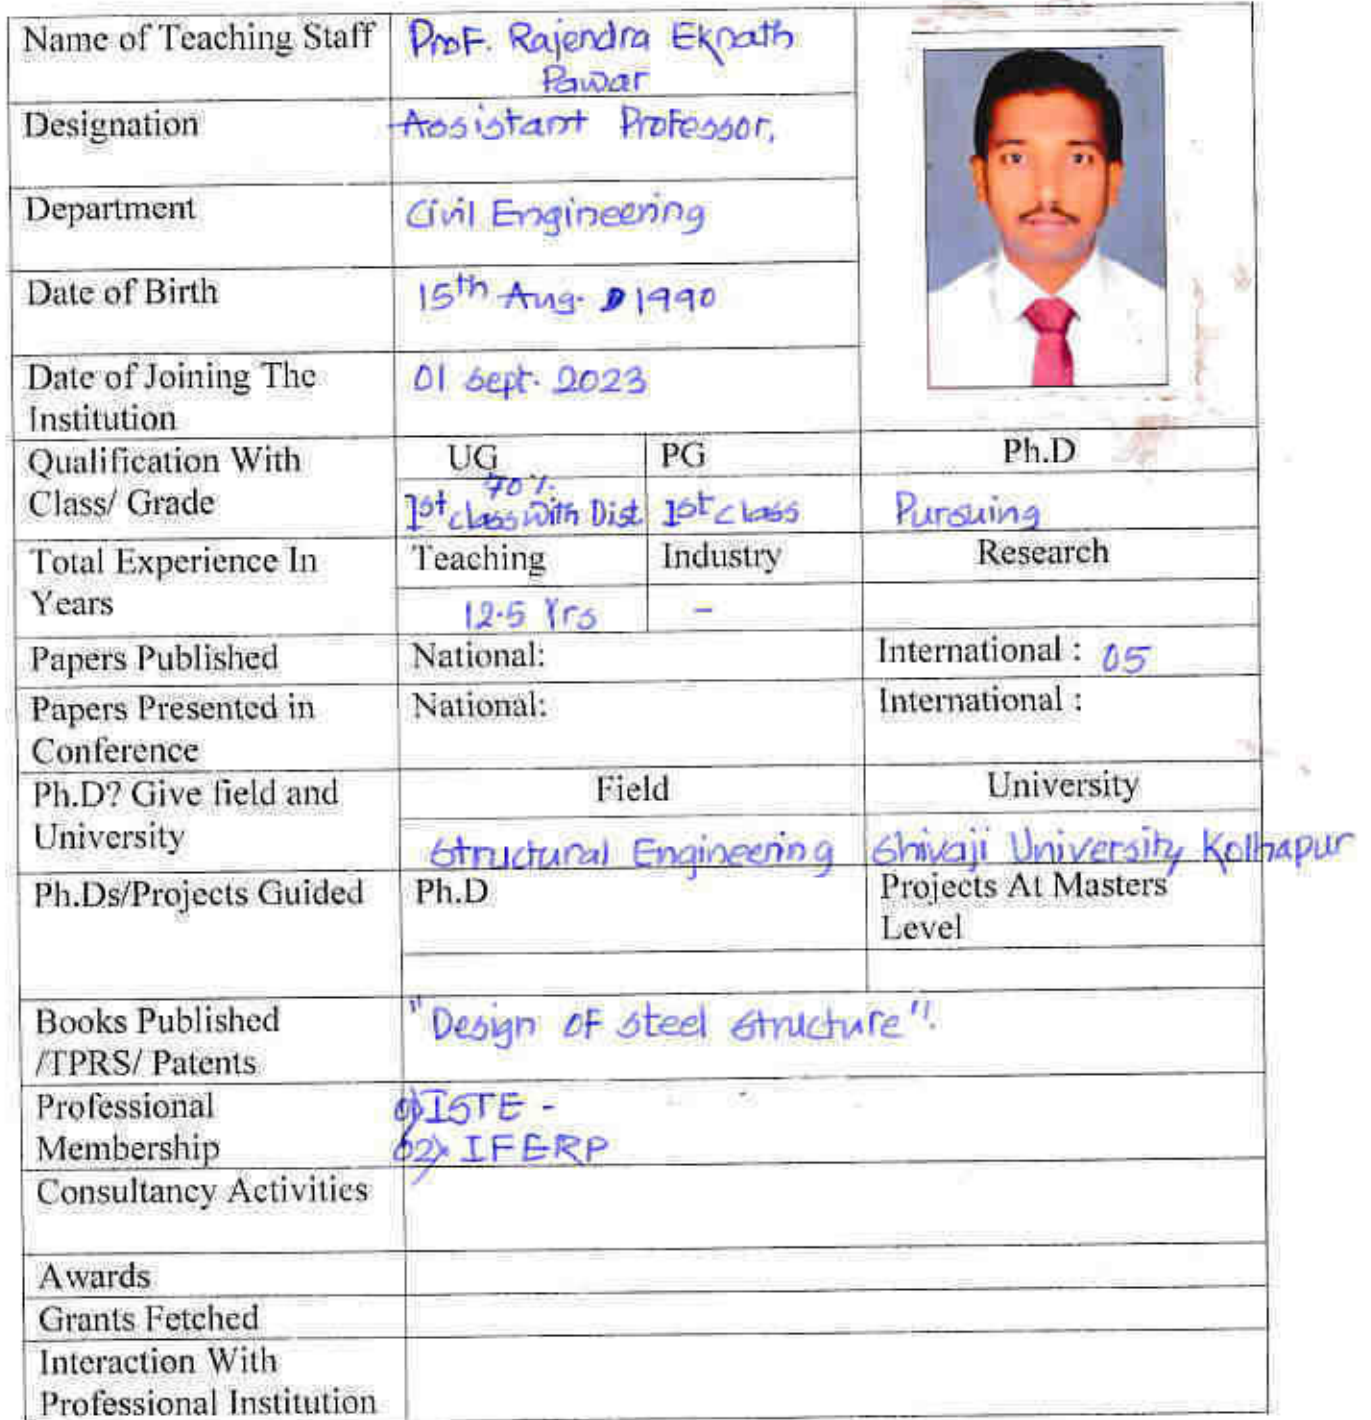 Name of Teaching Staff Prof. Rajendra Eknath
Pawar
Designation Assistant Professor,
Department Civil Engineering
Date of Birth 15th Aug. 1990
Date of Joining The 01 Sept. 2023
Institution
Qualification With UG PG Ph.D
70%.
Class/ Grade 1st class with Dist 1st class Pursuing
Total Experience In Teaching Industry Research
Years 12.5 Yrs -
Papers Published National: International : 05
Papers Presented in National: International :
Conference
Ph.D? Give field and Field University
University Structural Engineering Shivaji University Kolhapur
Ph.Ds/Projects Guided Ph.D Projects At Masters
Level
Books Published "Design of steel structure".
/TPRS/ Patents
Professional 01) ISTE -
Membership 02) IFERP
Consultancy Activities
Awards
Grants Fetched
Interaction With
Professional Institution